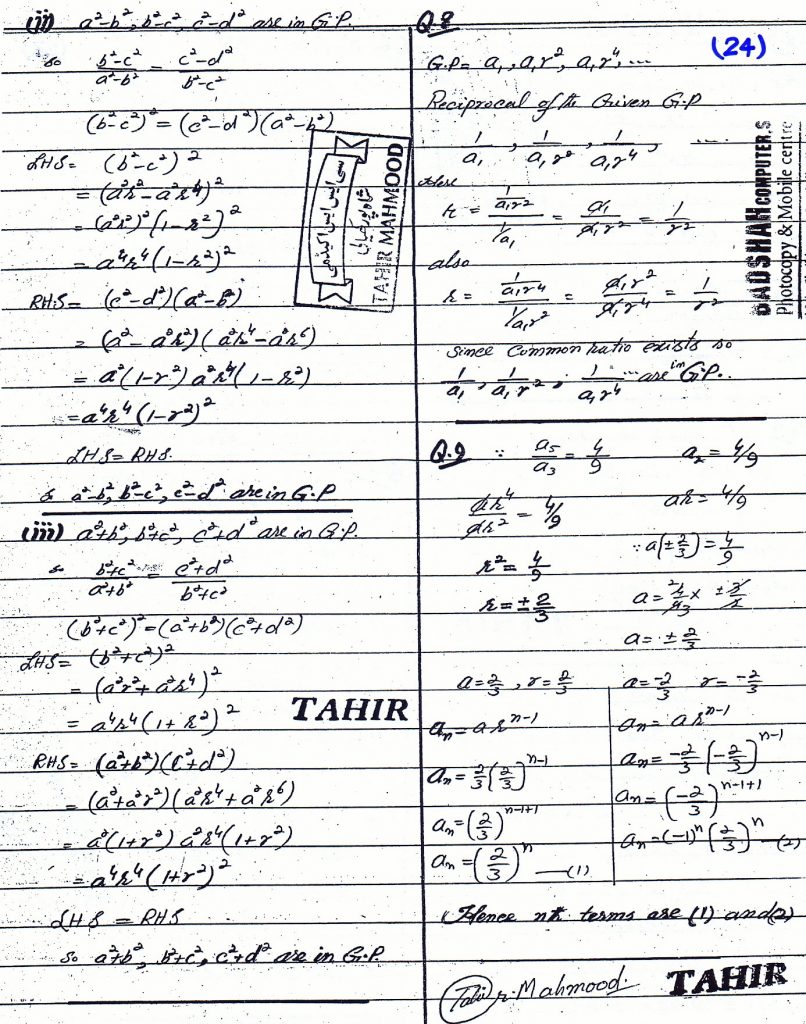 (ii) a²-b², b²-c², c²-d² are in G.P.
so (b²-c²)/(a²-b²) = (c²-d²)/(b²-c²)
(b²-c²)² = (c²-d²)(a²-b²)
LHS = (b²-c²)²
= (a²r²-a²r⁴)²
= (a²r²)²(1-r²)²
= a⁴r⁴(1-r²)²
RHS = (c²-d²)(a²-b²)
= (a²-a²r²)(a²r⁴-a²r⁶)
= a²(1-r²) a²r⁴(1-r²)
= a⁴r⁴(1-r²)²
LHS = RHS.
so a²-b², b²-c², c²-d² are in G.P
(iii) a²+b², b²+c², c²+d² are in G.P.
so (b²+c²)/(a²+b²) = (c²+d²)/(b²+c²)
(b²+c²)² = (a²+b²)(c²+d²)
LHS = (b²+c²)²
= (a²r²+a²r⁴)²
= a⁴r⁴(1+r²)²
RHS = (a²+b²)(c²+d²)
= (a²+a²r²)(a²r⁴+a²r⁶)
= a²(1+r²) a²r⁴(1+r²)
= a⁴r⁴(1+r²)²
LHS = RHS
so a²+b², b²+c², c²+d² are in G.P.
سی ایس ایس اکیڈمی
TAHIR MAHMOOD
TAHIR
Q.8
(24)
G.P = a₁, a₁r², a₁r⁴, ...
Reciprocal of the Given G.P
1/a₁, 1/a₁r², 1/a₁r⁴, ....
Here
r = (1/a₁r²)/(1/a₁) = a₁/a₁r² = 1/r²
also
r = (1/a₁r⁴)/(1/a₁r²) = a₁r²/a₁r⁴ = 1/r²
since common ratio exists so
1/a₁, 1/a₁r², 1/a₁r⁴ ... are in G.P..
BADSHAH COMPUTER,S
Photocopy & Mobile centre
Q.9 ∵ a₅/a₃ = 4/9 a₂ = 4/9
ar⁴/ar² = 4/9 ar = 4/9
r² = 4/9 ∵ a(±2/3) = 4/9
r = ±2/3 a = 4/9 × ±3/2
a = ±2/3
a = 2/3, r = 2/3
aₙ = arⁿ⁻¹
aₙ = 2/3(2/3)ⁿ⁻¹
aₙ = (2/3)ⁿ⁻¹⁺¹
aₙ = (2/3)ⁿ —(1)
a = -2/3 r = -2/3
aₙ = arⁿ⁻¹
aₙ = -2/3(-2/3)ⁿ⁻¹
aₙ = (-2/3)ⁿ⁻¹⁺¹
aₙ = (-1)ⁿ(2/3)ⁿ —(2)
Hence nth terms are (1) and (2)
Tahir Mahmood.
TAHIR